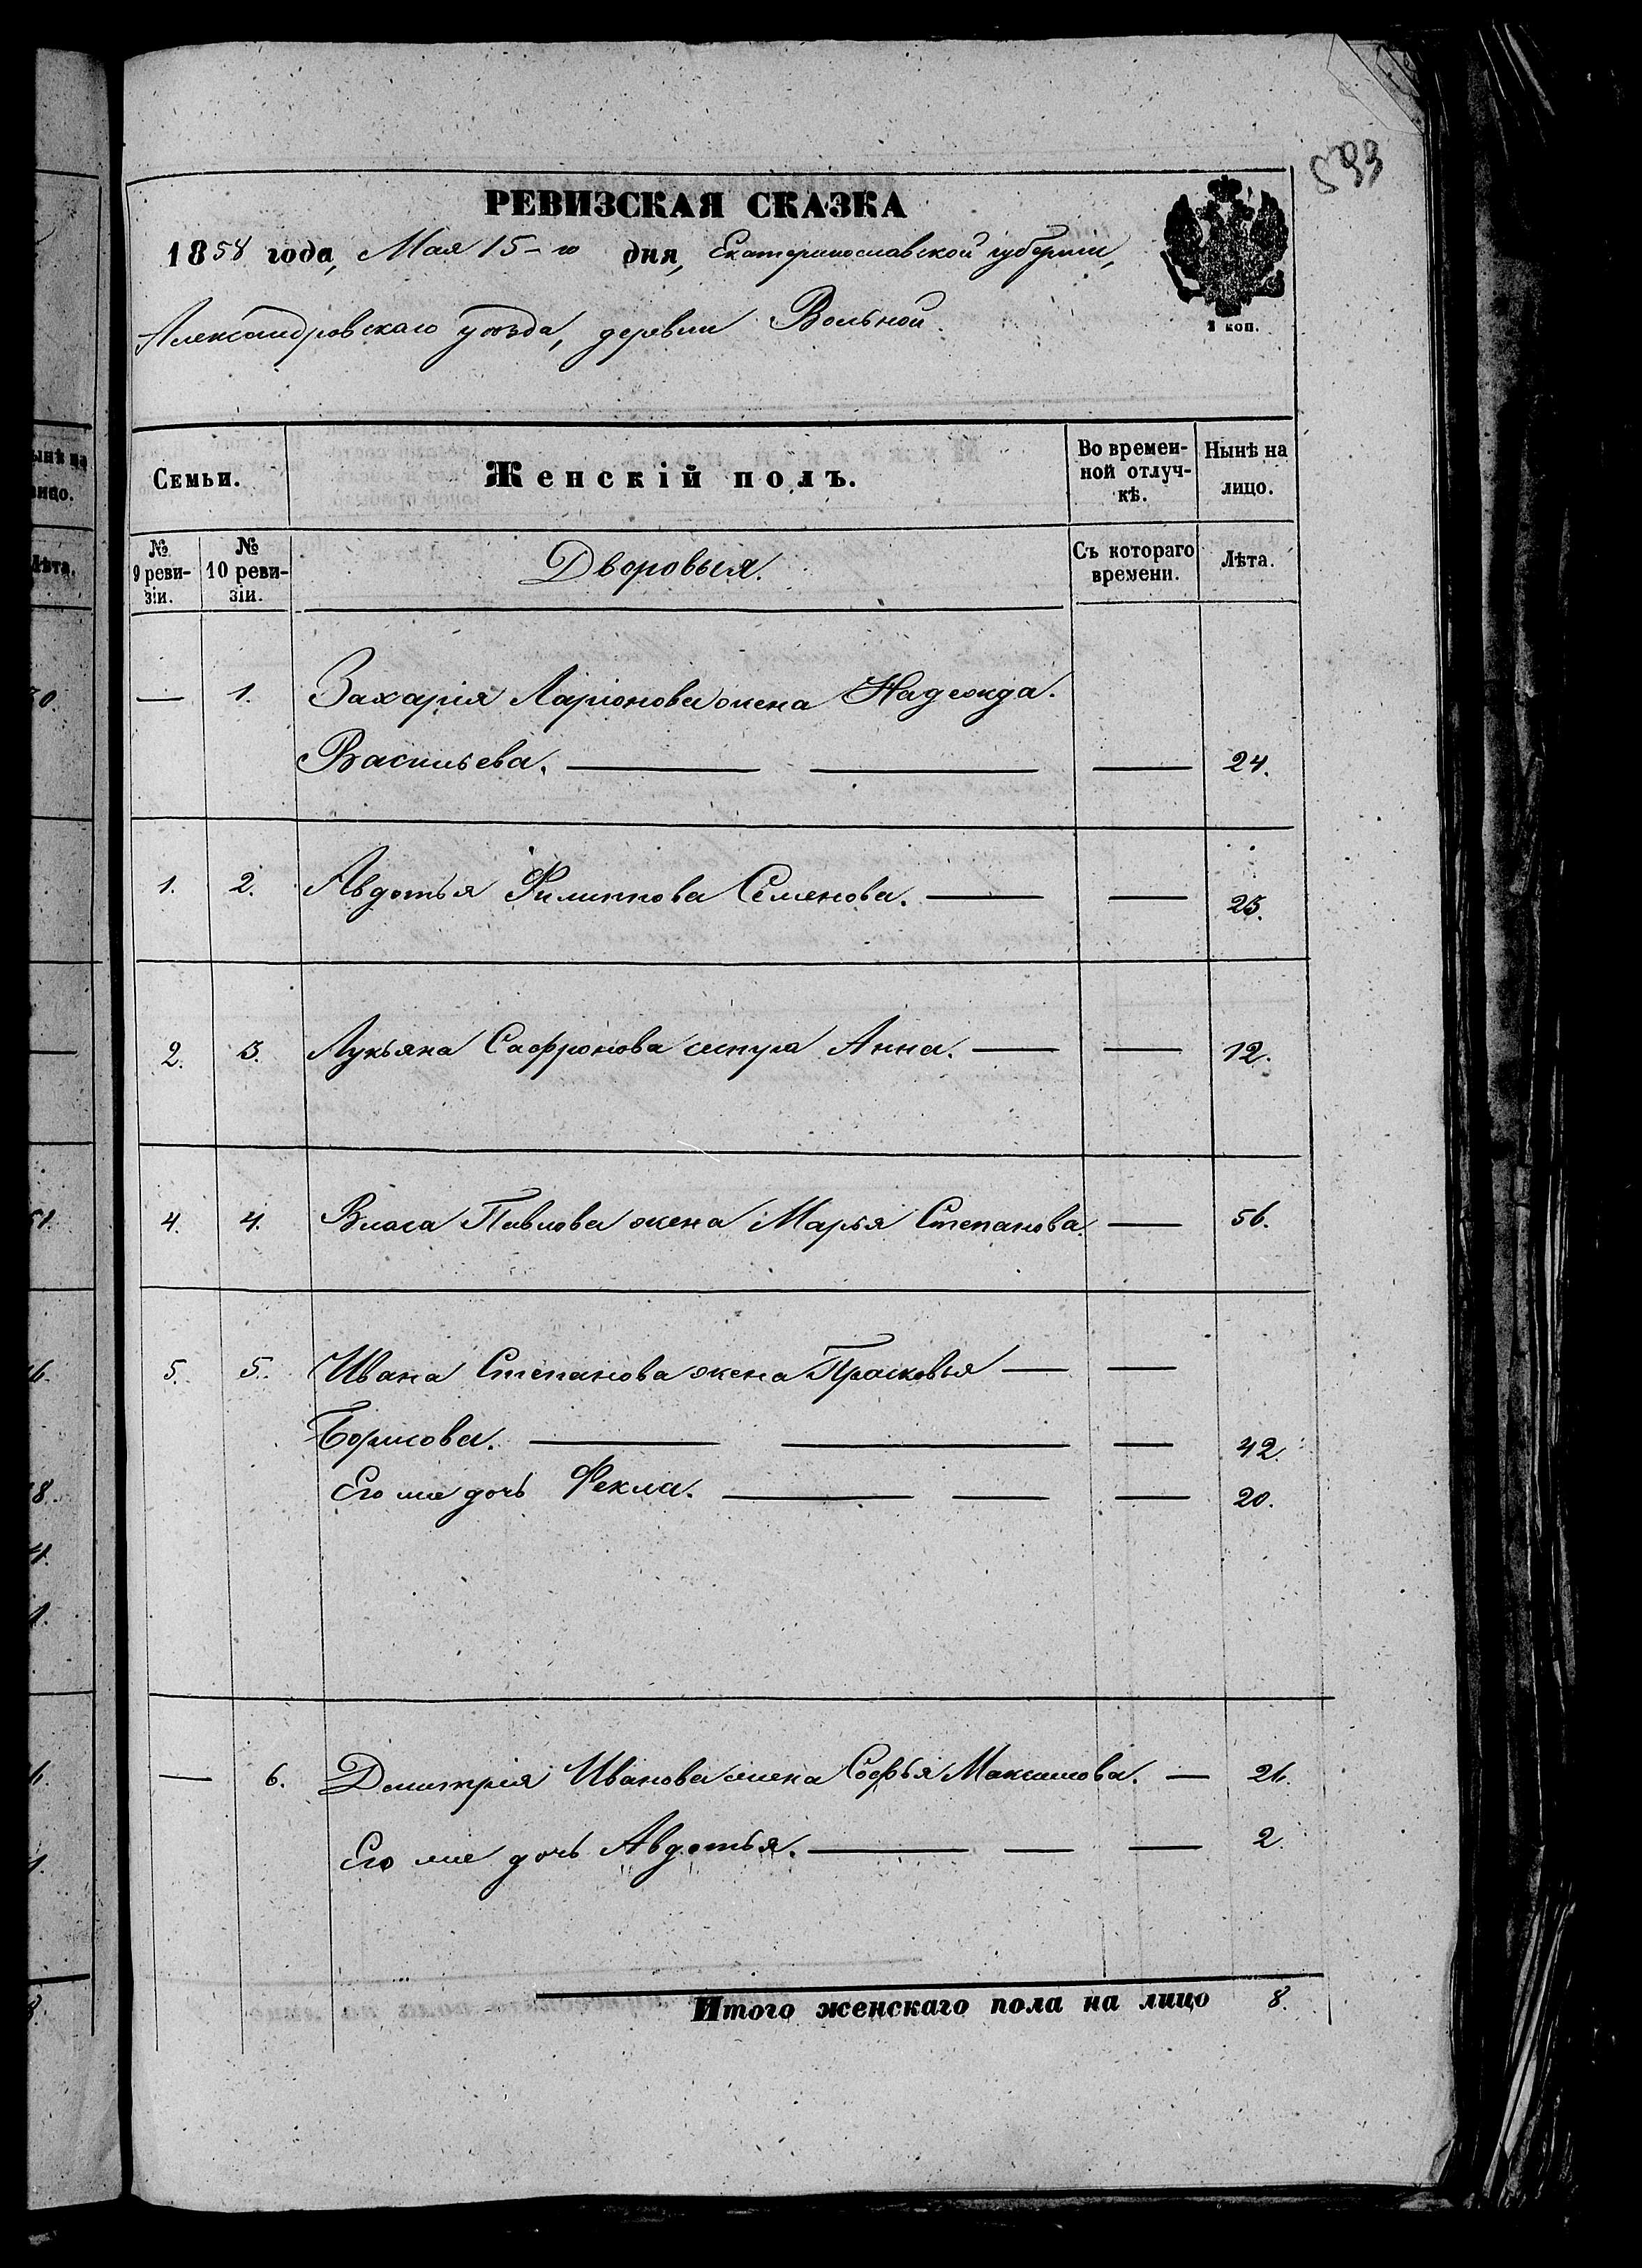 593
РЕВИЗСКАЯ СКАЗКА
1858 года, Мая 15-го дня, Екатеринославской губерніи,
Александровскаго уѣзда, деревни Вольной.
1 коп.
Семьи. Женскій полъ. Во времен-ной отлуч-кѣ. Нынѣ на лицо.
№ 9 реви-зіи. № 10 реви-зіи. Дворовыя. Съ котораго времени. Лѣта.
— 1. Захарія Ларіонова жена Надежда.
Васильева. — — — 24.
1. 2. Авдотья Филиппова Семенова. — — 25.
2. 3. Лукьяна Сафронова сестра Анна. — — 12.
4. 4. Власа Павлова жена Марья Степанова. — 56.
5. 5. Ивана Степанова жена Прасковья — —
Борисова. — — — 42.
Его же дочь Фекла. — — — 20.
— 6. Дмитрія Иванова жена Софья Максимова. — 21.
Его же дочь Авдотья. — — — 2
Итого женскаго пола на лицо 8.